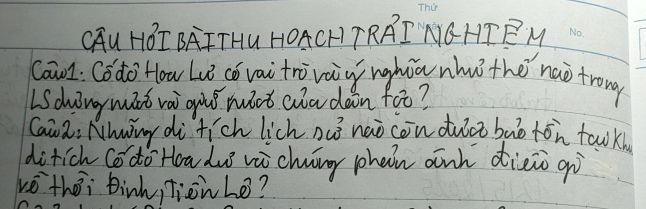 Thứ
Ngày No.
CÂU HỎI BÀI THU HOẠCH TRẢI NGHIỆM
Câu1: Cố đô Hoa Lư có vai trò và ý nghĩa như thế nào trong
LS dựng nước và giữ nước của dân tộc?
Câu2: Những di tích lịch sử nào còn được bảo tồn tại khu
di tích Cố đô Hoa Lư và chúng phản ánh điều gì
về thời Đinh, Tiền Lê?